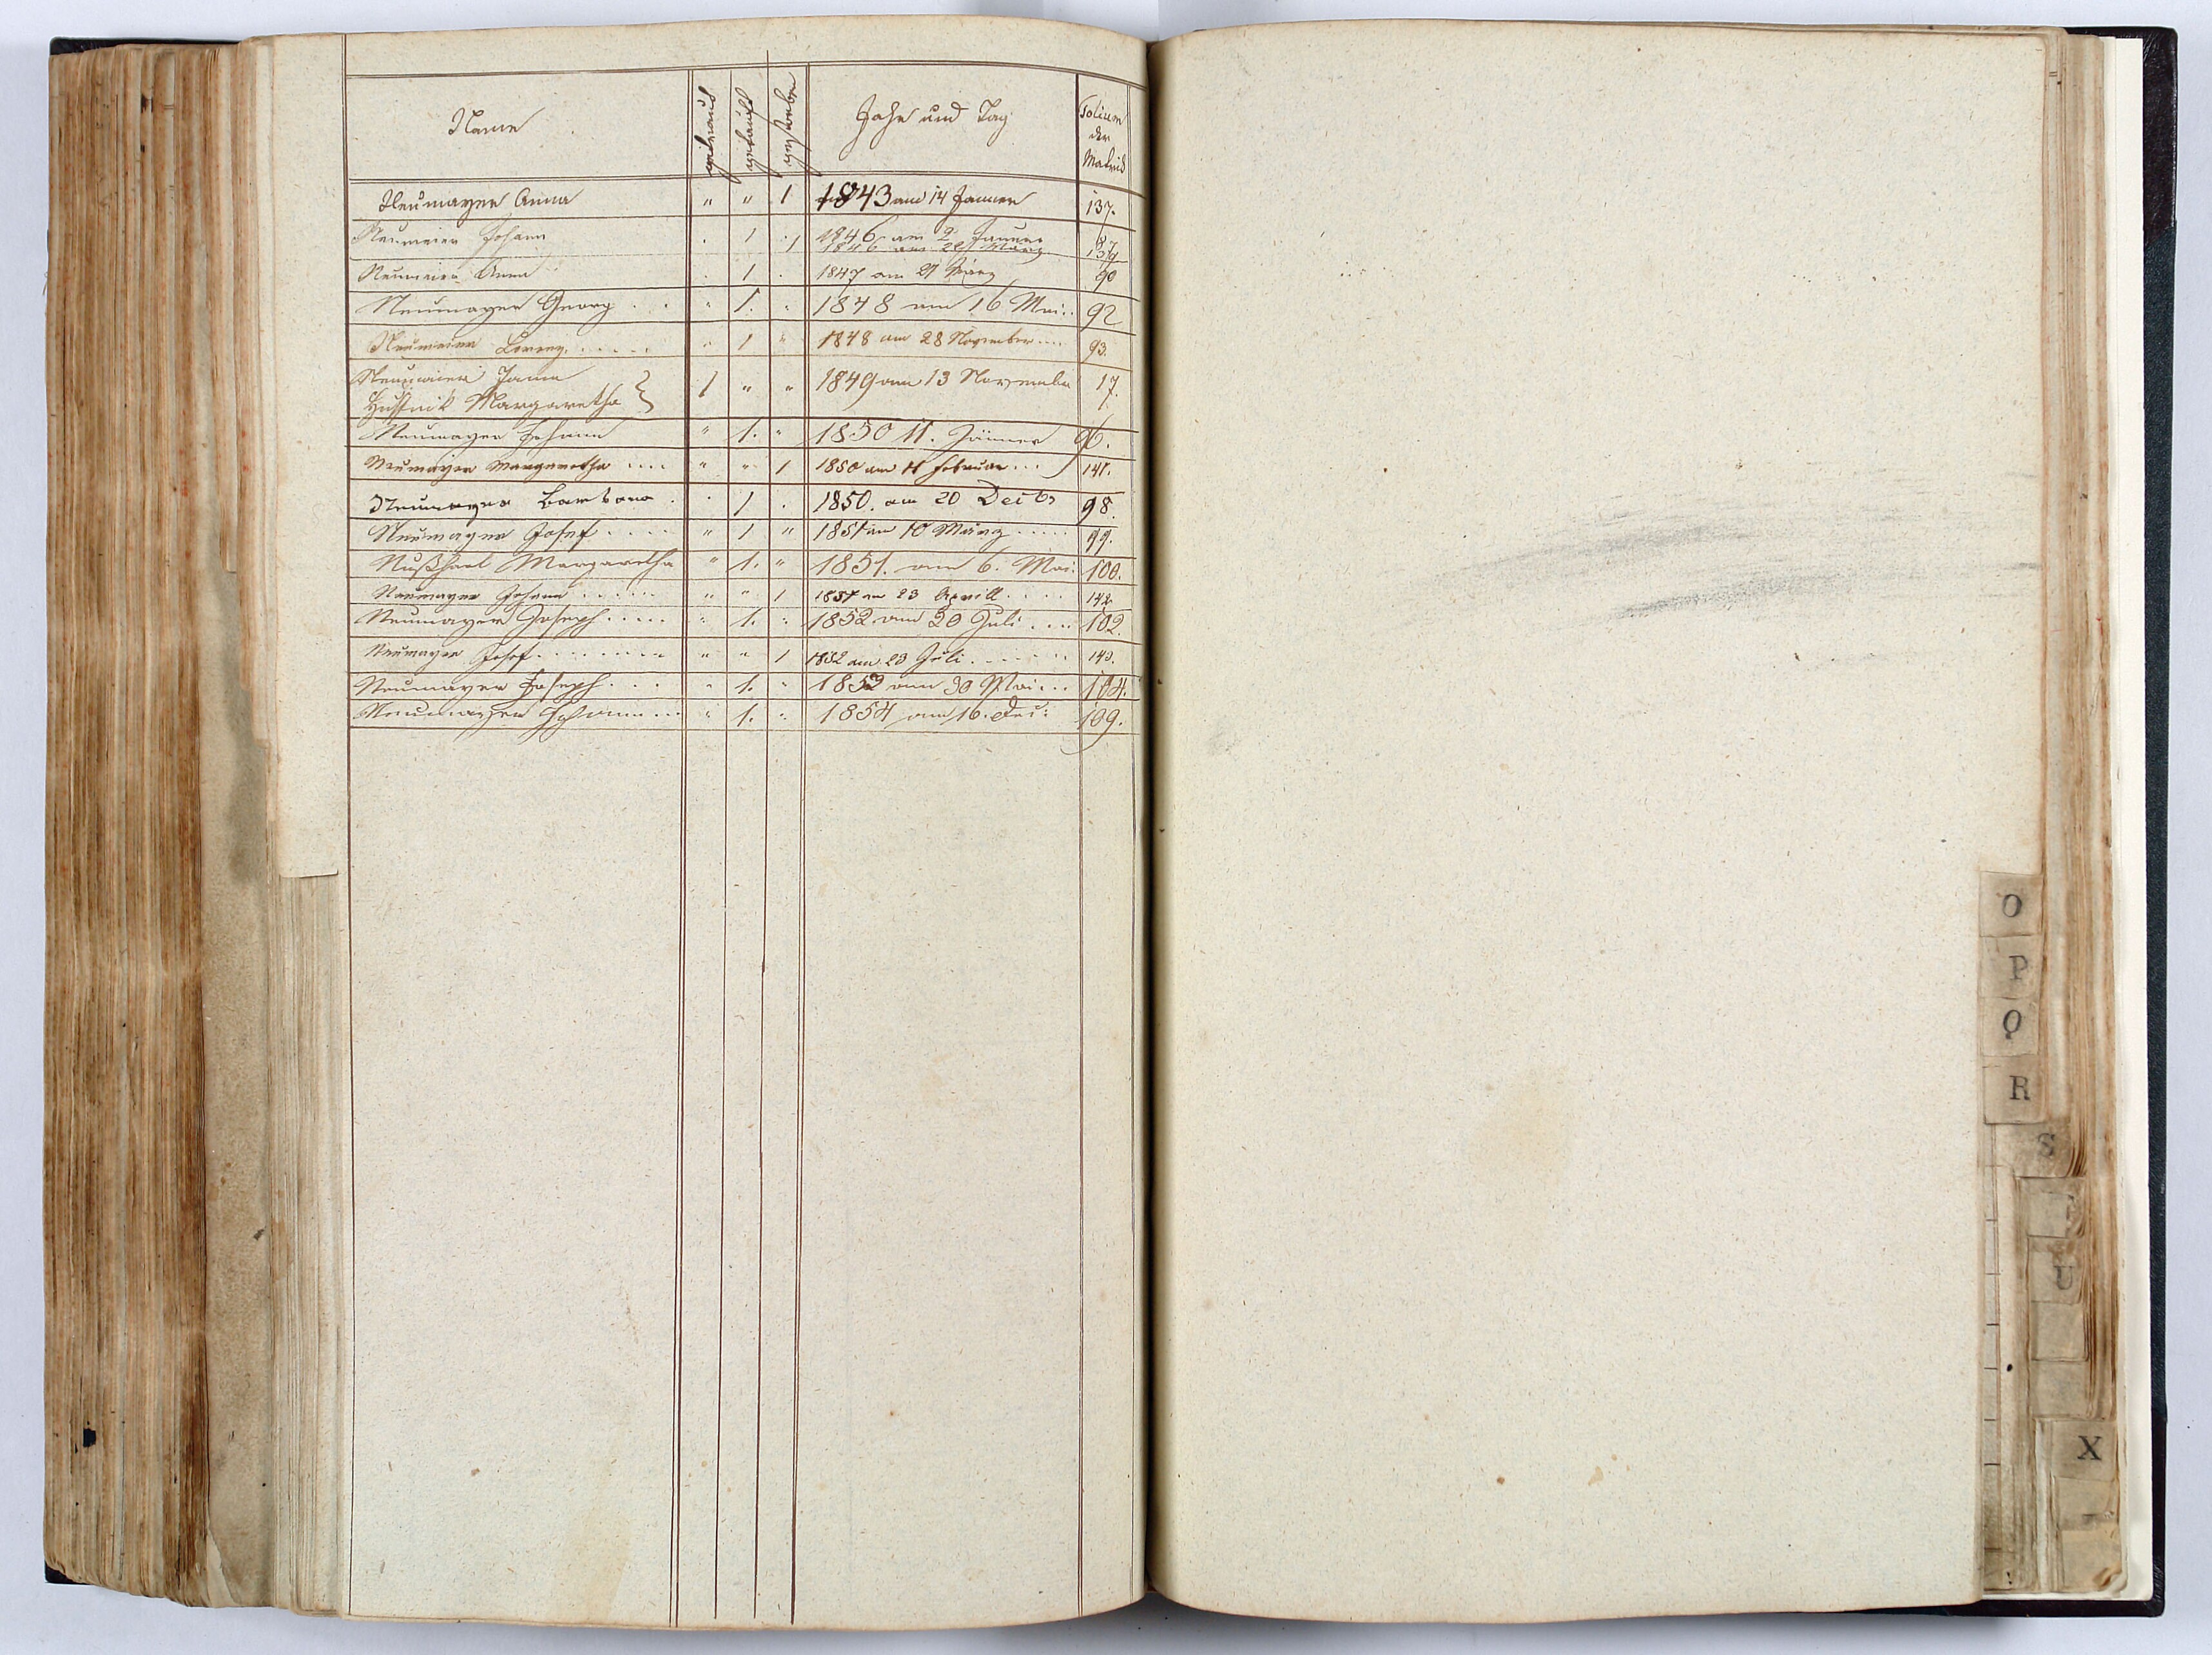 Name getraut getauft gestorben Jahr und Tag Folium der Matrik
Neumayer Anna " " 1 1843 am 14 Januer 137.
Neumeier Johann . 1 . 1846 am 2 Januer 87
1 1846 am 22 März 139
Neumeier Anna . 1 . 1847 am 27 März 90
Neumayer Georg . . " 1. " 1848 am 16 Mai . . 92
Neumeier Lorenz . . . . . " 1 " 1848 am 28 November . . . . 93.
Neumeier 1 " " 1849 am 13 November 17.
Margaretha
Neumayer Johann " 1. " 1850 11. Jänner 96.
Neumayer Margaretha . . . . " " 1 1850 am 11 Februar . . . 141.
Neumayer Barbara . . 1 . 1850. am 20 Decbr 98.
Neumayer Josef . . . . " 1 " 1851 am 10 März . . . . . 99.
Nußhart Margaretha " 1. " 1851. am 6. Mai 100.
Neumayer Johann . . . . . . " " 1 1851 am 23 Aprill . . . . 142
Neumayer Joseph . . . . . " 1. " 1852 am 20 Juli . . . 102.
Neumayer Josef . . . . . . . . " " 1 1852 am 23 Juli . . . . . . 143.
Neumayer Joseph . . . " 1. " 1853 am 30 Mai . . . 104.
Neumayer Johann . . . " 1. " 1854 am 16. Dec: 109.
O
P
Q
R
S
U
X